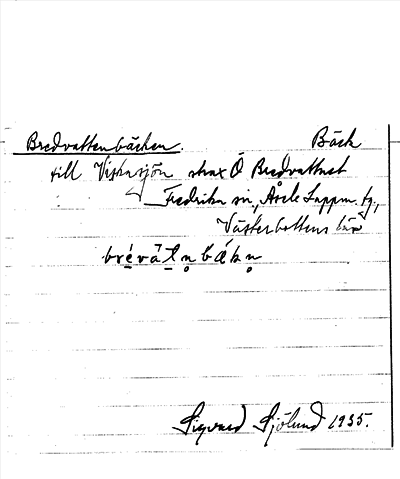 Bredvattenbäcken. Bäck
till Viskasjön strax Ö Bredvattnet
Fredrika sn, Åsele Lappm. tg,
Västerbottens län
brèvàtn̥bækn̥
Sigvard Sjölund 1935.